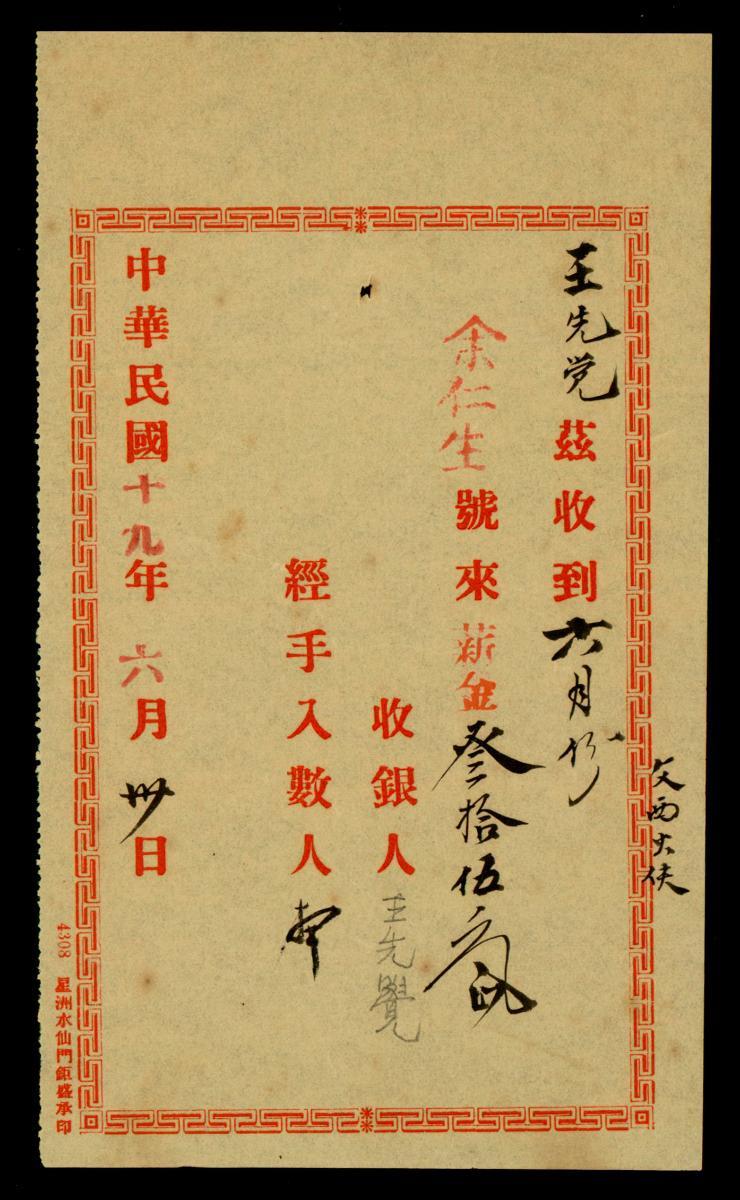 王先觉茲收到六月份
余仁生號來薪金叁拾伍
收銀人王先覺
經手入數人
中華民國十九年六月卅日
4308 星洲水仙門鉅盛承印